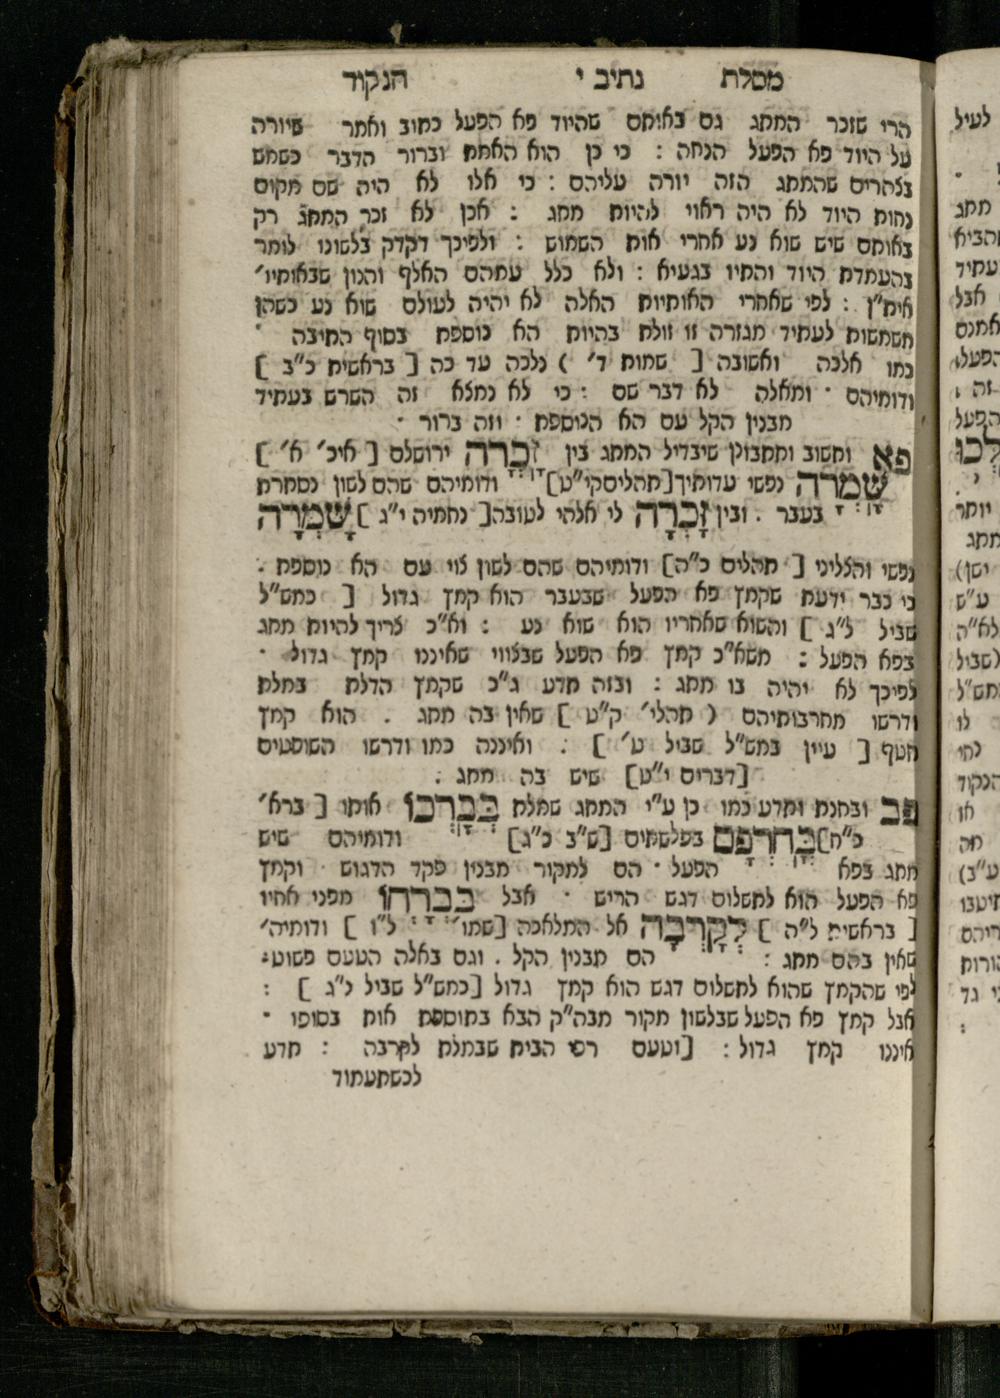 מסלת נתיב י הנקוד
הרי שזכר המתג גם באותם שהיוד פא הפעל כתוב ואמר שיורה
על היוד פא הפעל הנחה : כי כן הוא האמת וברור הדבר כשמש
בצהרים שהמתג הזה יורה עליהם : כי אלו לא היה שם מקום
נחות היוד לא היה ראוי להיות מתג : אכן לא זכר המתג רק
באותם שיש שוא נע אחרי אות השמוש : ולפיכך דקדק בלשונו לומר
בהעמדת היוד והתיו בגעיא : ולא כלל עמהם האלף והנון שבאותיו׳
אית״ן : לפי שאחרי האותיות האלה לא יהיה לעולם שוא נע כשהן
משמשות לעתיד מגזרה זו זולת בהיות הא נוספת בסוף התיבה ·
כמו אלכה ואשובה [ שמות ד׳ ) נלכה עד כה [ בראשית כ״ב ]
ודומיהם · ומאלה לא דבר שם : כי לא נמצא זה השרש בעתיד
מבנין הקל עם הא הנוספת · וזה ברור ·
פא וחשוב ומתבונן שיבדיל המתג בין זָכְרָה ירושלם [ איכ׳ א׳ ]
שָׁמְרָה נפשי עדותיך [תהליםקי״ט] ודומיהם שהם לשון נסתרת
בעבר . ובין זָכְרָה לי אלהי לטובה[ נחמיה י״ג ] שָׁמְרָה
נפשי והצליני [ תהלים כ״ה] ודומיהם שהם לשון צוי עם הא נוספת .
כי כבר ידעת שקמץ פא הפעל שבעבר הוא קמץ גדול [ כמש״ל
שביל ל״ג ] והשוא שאחריו הוא שוא נע : וא״כ צריך להיות מתג
בפא הפעל : משא״כ קמץ פא הפעל שבצווי שאיננו קמץ גדול ·
לפיכך לא יהיה בו מתג : ובזה תדע ג״כ שקמץ הדלת במלת
ודרשו מחרבותיהם ( תהלי׳ ק״ט ] שאין בה מתג . הוא קמץ
חטף [ עיין במש״ל שביל ט׳ ] . ואיננה כמו ודרשו השופטים
[דברים י״ט] שיש בה מתג .
פב ובחנת ותדע כמו כן ע״י המתג שמלת בְּבָרְכוֹ אותו [ ברא׳
כ״ח] בְּחָרְפָם בפלשתים [ש״ב כ״ג] ודומיהם שיש
מתג בפא הפעל · הם למקור מבנין פקד הדגוש · וקמץ
פא הפעל הוא לתשלום דגש הריש · אבל בְּבָרְחוֹ מפני אחיו
[ בראשית ל״ה ] לְקָרְבָה אל המלאכה [שמו׳ ל״ו ] ודומיה׳
שאין בהם מתג : הם מבנין הקל . וגם באלה הטעם פשוט:
לפי שהקמץ שהוא לתשלום דגש הוא קמץ גדול [כמש״ל שביל ל״ג ] :
אבל קמץ פא הפעל שבלשון מקור מבה״ק הבא בתוספת אות בסופו ·
איננו קמץ גדול : [וטעם רפי הבית שבמלת לקרבה : תדע
לכשתעמוד
לעיל
מתג
והביא
עתיד
אבל
אמנם
הפעל
זה
הפעל
לְכוּ
יותר
מתג
ישן)
ע״ש
לא״ה
לשביל
מש״ל
לו
לחי
הנקוד
או
מה
ע״ב)
תיטבו
ריהם
הורות
גד